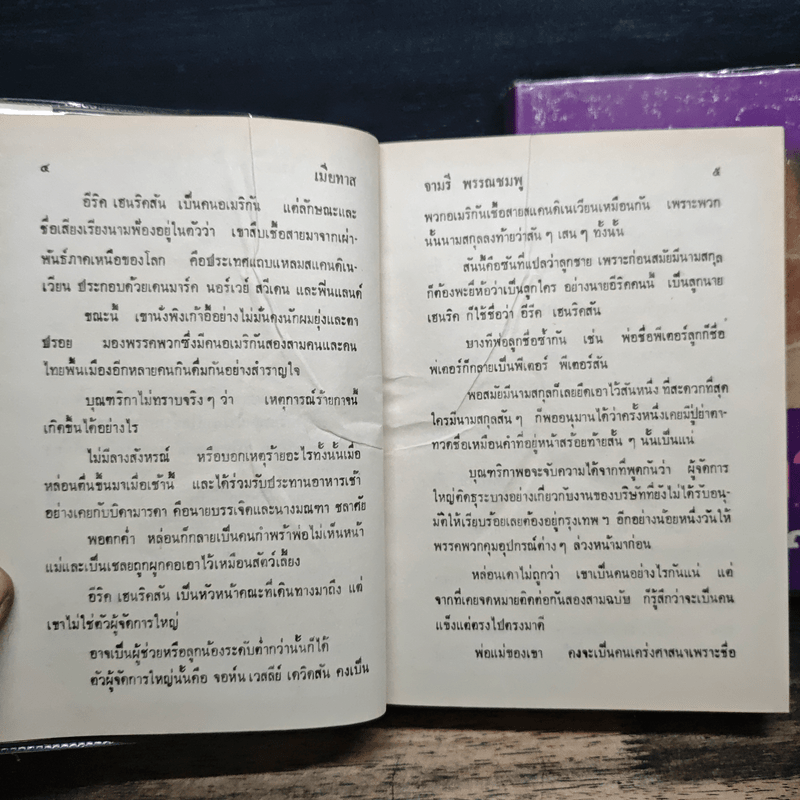 ๔
เมียทาส
อีริค เฮนริคสัน เป็นคนอเมริกัน แต่ลักษณะและ
ชื่อเสียงเรียงนามฟ้องอยู่ในตัวว่า เขาสืบเชื้อสายมาจากเผ่า-
พันธุ์ภาคเหนือของโลก คือประเทศแถบแหลมสแคนดิเน-
เวียน ประกอบด้วยเดนมาร์ค นอร์เวย์ สวีเดน และฟินแลนด์
ขณะนี้ เขานั่งพิงเก้าอี้อย่างไม่มั่นคงนักผมยุ่งและตา
ปรอย มองพรรคพวกซึ่งมีคนอเมริกันสองสามคนและคน
ไทยพื้นเมืองอีกหลายคนกินดื่มกันอย่างสำราญใจ
บุณฑริกาไม่ทราบจริง ๆ ว่า เหตุการณ์ร้ายกาจนี้
เกิดขึ้นได้อย่างไร
ไม่มีลางสังหรณ์ หรือบอกเหตุร้ายอะไรทั้งนั้นเมื่อ
หล่อนตื่นขึ้นมาเมื่อเช้านี้ และได้ร่วมรับประทานอาหารเช้า
อย่างเคยกับบิดามารดา คือนายบรรเจิดและนางมณฑา ชลาศัย
พอตกค่ำ หล่อนก็กลายเป็นคนกำพร้าพ่อไม่เห็นหน้า
แม่และเป็นเชลยถูกผูกคอเอาไว้เหมือนสัตว์เลี้ยง
อีริค เฮนริคสัน เป็นหัวหน้าคณะที่เดินทางมาถึง แต่
เขาไม่ใช่ตัวผู้จัดการใหญ่
อาจเป็นผู้ช่วยหรือลูกน้องระดับต่ำกว่านั้นก็ได้
ตัวผู้จัดการใหญ่นั้นคือ จอห์น เวสลีย์ เดวิดสัน คงเป็น
๕
จามรี พรรณชมพู
พวกอเมริกันเชื้อสายสแคนดิเนเวียนเหมือนกัน เพราะพวก
นั้นนามสกุลลงท้ายว่าสัน ๆ เสน ๆ ทั้งนั้น
สันนี้คือซันที่แปลว่าลูกชาย เพราะก่อนสมัยมีนามสกุล
ก็ต้องพะยี่ห้อว่าเป็นลูกใคร อย่างนายอีริคคนนี้ เป็นลูกนาย
เฮนริค ก็ใช้ชื่อว่า อีริค เฮนริคสัน
บางทีพ่อลูกชื่อซ้ำกัน เช่น พ่อชื่อพีเตอร์ลูกก็ชื่อ
พีเตอร์ก็กลายเป็นพีเตอร์ พีเตอร์สัน
พอสมัยมีนามสกุลก็เลยยึดเอาไว้สันหนึ่ง ที่สะดวกที่สุด
ใครมีนามสกุลสัน ๆ ก็พออนุมานได้ว่าครั้งหนึ่งเคยมีปู่ย่าตา-
ทวดชื่อเหมือนคำที่อยู่หน้าสร้อยท้ายสั้น ๆ นั้นเป็นแน่
บุณฑริกาพอจะจับความได้จากที่พูดกันว่า ผู้จัดการ
ใหญ่ติดธุระบางอย่างเกี่ยวกับงานของบริษัทที่ยังไม่ได้รับอนุ-
มัติให้เรียบร้อยเลยต้องอยู่กรุงเทพ ฯ อีกอย่างน้อยหนึ่งวันให้
พรรคพวกคุมอุปกรณ์ต่าง ๆ ล่วงหน้ามาก่อน
หล่อนเดาไม่ถูกว่า เขาเป็นคนอย่างไรกันแน่ แต่
จากที่เคยจดหมายติดต่อกันสองสามฉบับ ก็รู้สึกว่าจะเป็นคน
แข็งแต่ตรงไปตรงมาดี
พ่อแม่ของเขา คงจะเป็นคนเคร่งศาสนาเพราะชื่อ